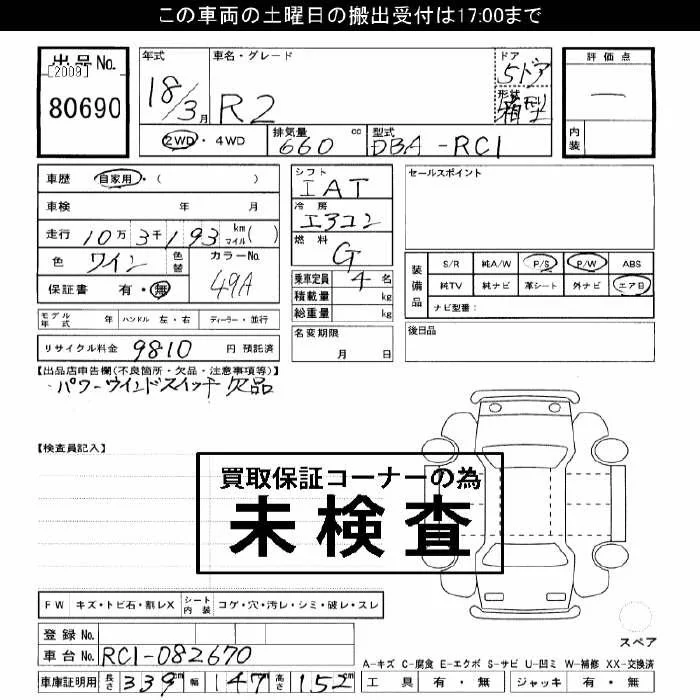 この車両の土曜日の搬出受付は17:00まで
出品No. [2009] 80690
年式 18/3月
車名・グレード R2
ドア 5ドア
形状 箱型
評価点 —
内装
2WD・4WD
排気量 660 cc
型式 DBA-RC1
車歴 自家用・( )
車検 年 月
走行 10万3千193 km マイル( )
色 ワイン 色替 カラーNo. 49A
保証書 有・無
シフト IAT
冷房 エアコン
燃料 G
乗車定員 4名
積載量 kg
総重量 kg
セールスポイント
装備品 S/R 純A/W P/S P/W ABS
純TV 純ナビ 革シート 外ナビ エアB
ナビ型番:
モデル年式 年 ハンドル 左・右 ディーラー・並行
名変期限 月 日
後日品
リサイクル料金 9810 円 預託済
【出品店申告欄(不良箇所・欠品・注意事項等)】
パワーウインドスイッチ欠品
【検査員記入】
買取保証コーナーの為
未検査
FW キズ・トビ石・割レX シート内装 コゲ・穴・汚レ・シミ・破レ・スレ
スペア
登録No.
車台No. RC1-082670
A-キズ C-腐食 E-エクボ S-サビ U-凹ミ W-補修 XX-交換済
車庫証明用 長さ 339cm 幅 147cm 高さ 152cm
工具 有・無 ジャッキ 有・無